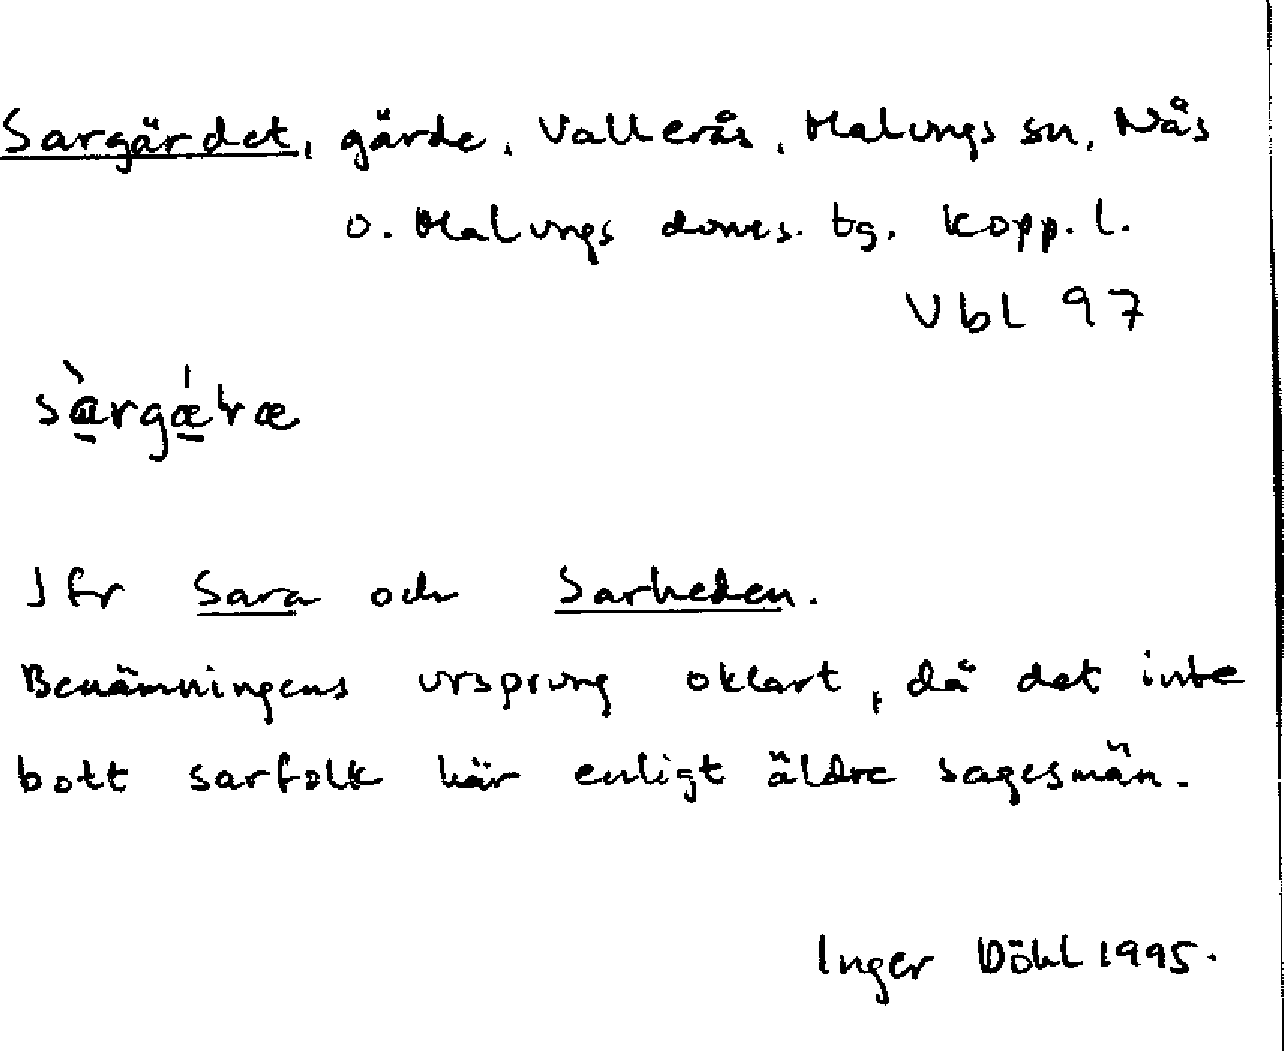 Sargärdet, gärde, Vallerås, Malungs sn, Nås
o. Malungs doms. tg. Kopp. l.
Vbl 97
Jfr Sara och Sarheden.
Benämningens ursprung oklart, då det inte
bott sarfolk här enligt äldre sagesmän.
Inger Döhl 1995.